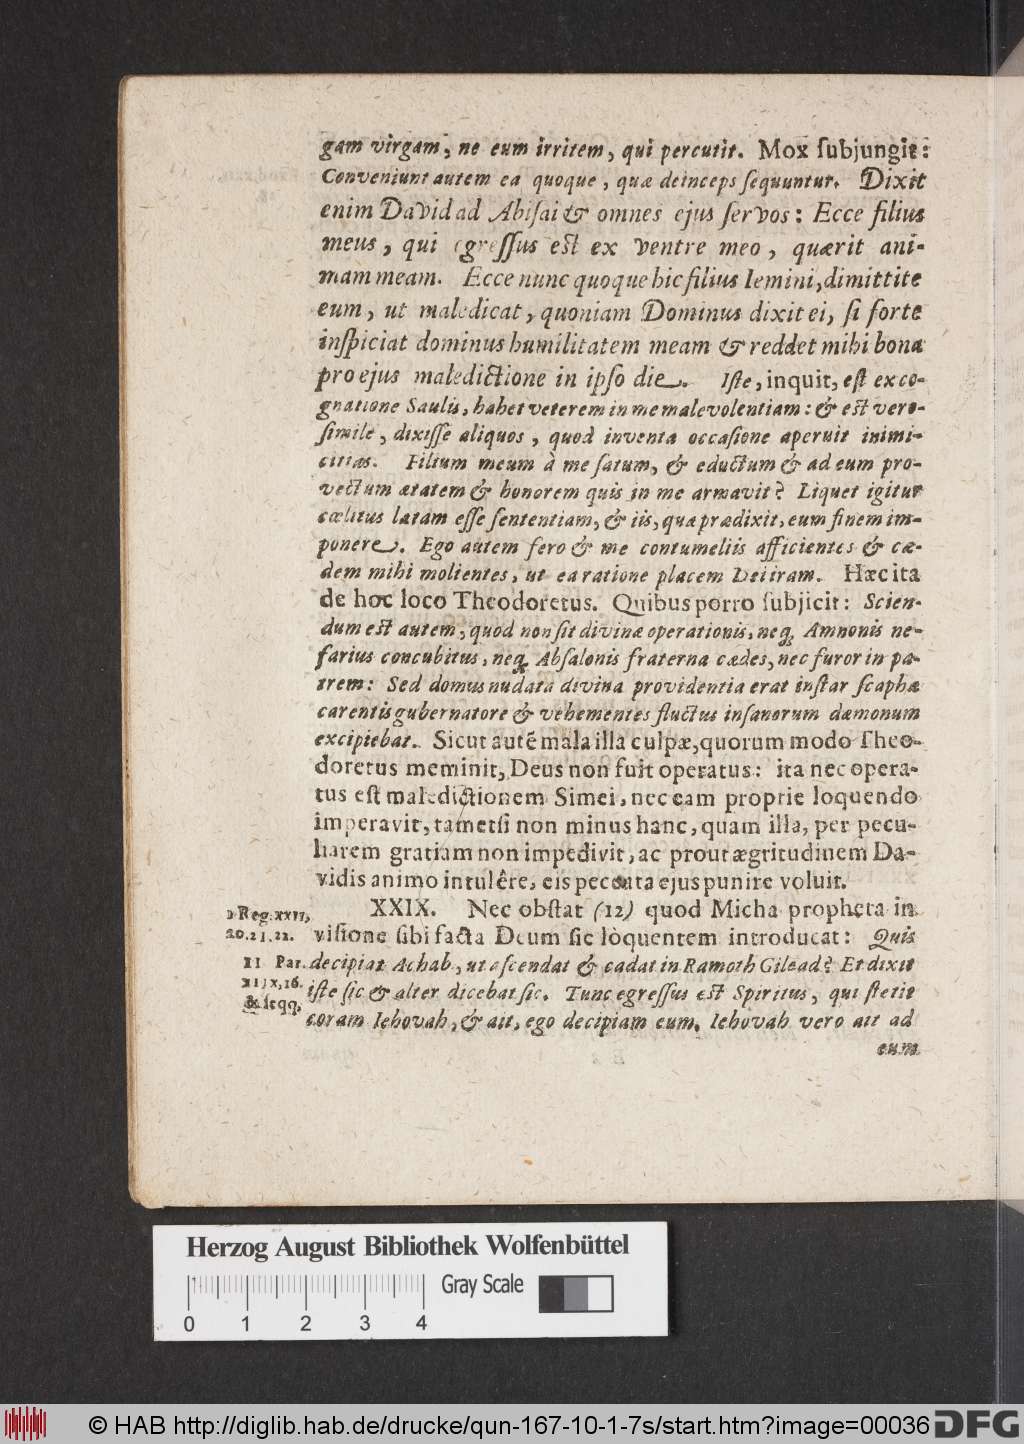 gam virgam, ne eum irritem, qui percutit. Mox ſubjungit:
Conveniunt autem ea quoque, quæ deinceps ſequuntur. Dixit
enim David ad Abiſai & omnes ejus ſervos: Ecce filius
meus, qui egreſſus eſt ex ventre meo, quærit ani-
mam meam. Ecce nunc quoque hic filius Iemini, dimittite
eum, ut maledicat, quoniam Dominus dixit ei, ſi forte
inſpiciat dominus humilitatem meam & reddet mihi bona
pro ejus maledictione in ipſo die. Iſte, inquit, eſt ex co-
gnatione Saulis, habet veterem in me malevolentiam: & eſt vero-
ſimile, dixiſſe aliquos, quod inventa occaſione aperuit inimi-
citias. Filium meum à me ſatum, & eductum & ad eum pro-
vectum ætatem & honorem quis in me armavit? Liquet igitur
cœlitus latam eſſe ſententiam, & iis, quæ prædixit, eum finem im-
ponere. Ego autem fero & me contumeliis afficientes & cæ-
dem mihi molientes, ut ea ratione placem Dei iram. Hæc ita
de hoc loco Theodoretus. Quibus porro ſubjicit: Scien-
dum eſt autem, quod non ſit divinæ operationis, neq́; Amnonis ne-
farius concubitus, neq́; Abſalonis fraterna cædes, nec furor in pa-
trem: Sed domus nudata divina providentia erat inſtar ſcaphæ
carentis gubernatore & vehementes fluctus inſanorum dæmonum
excipiebat. Sicut autẽ mala illa culpæ, quorum modo Theo-
doretus meminit, Deus non fuit operatus: ita nec opera-
tus eſt maledictionem Simei, nec eam proprie loquendo
imperavit, tametſi non minus hanc, quam illa, per pecu-
liarem gratiam non impedivit, ac prout ægritudinem Da-
vidis animo intulêre, eis peccata ejus punire voluit.
XXIX. Nec obſtat (12) quod Micha propheta in
1 Reg. XXII,
viſione ſibi facta Deum ſic loquentem introducat: Quis
20.21.22.
decipiat Achab, ut aſcendat & cadat in Ramoth Gilead? Et dixit
II Par.
iſte ſic & alter dicebat ſic. Tunc egreſſus eſt Spiritus, qui ſtetit
& ſeqq.
coram Iehovah, & ait, ego decipiam eum. Iehovah vero ait ad
eum
Herzog August Bibliothek Wolfenbüttel
Gray Scale
0 1 2 3 4
© HAB http://diglib.hab.de/drucke/qun-167-10-1-7s/start.htm?image=00036
DFG